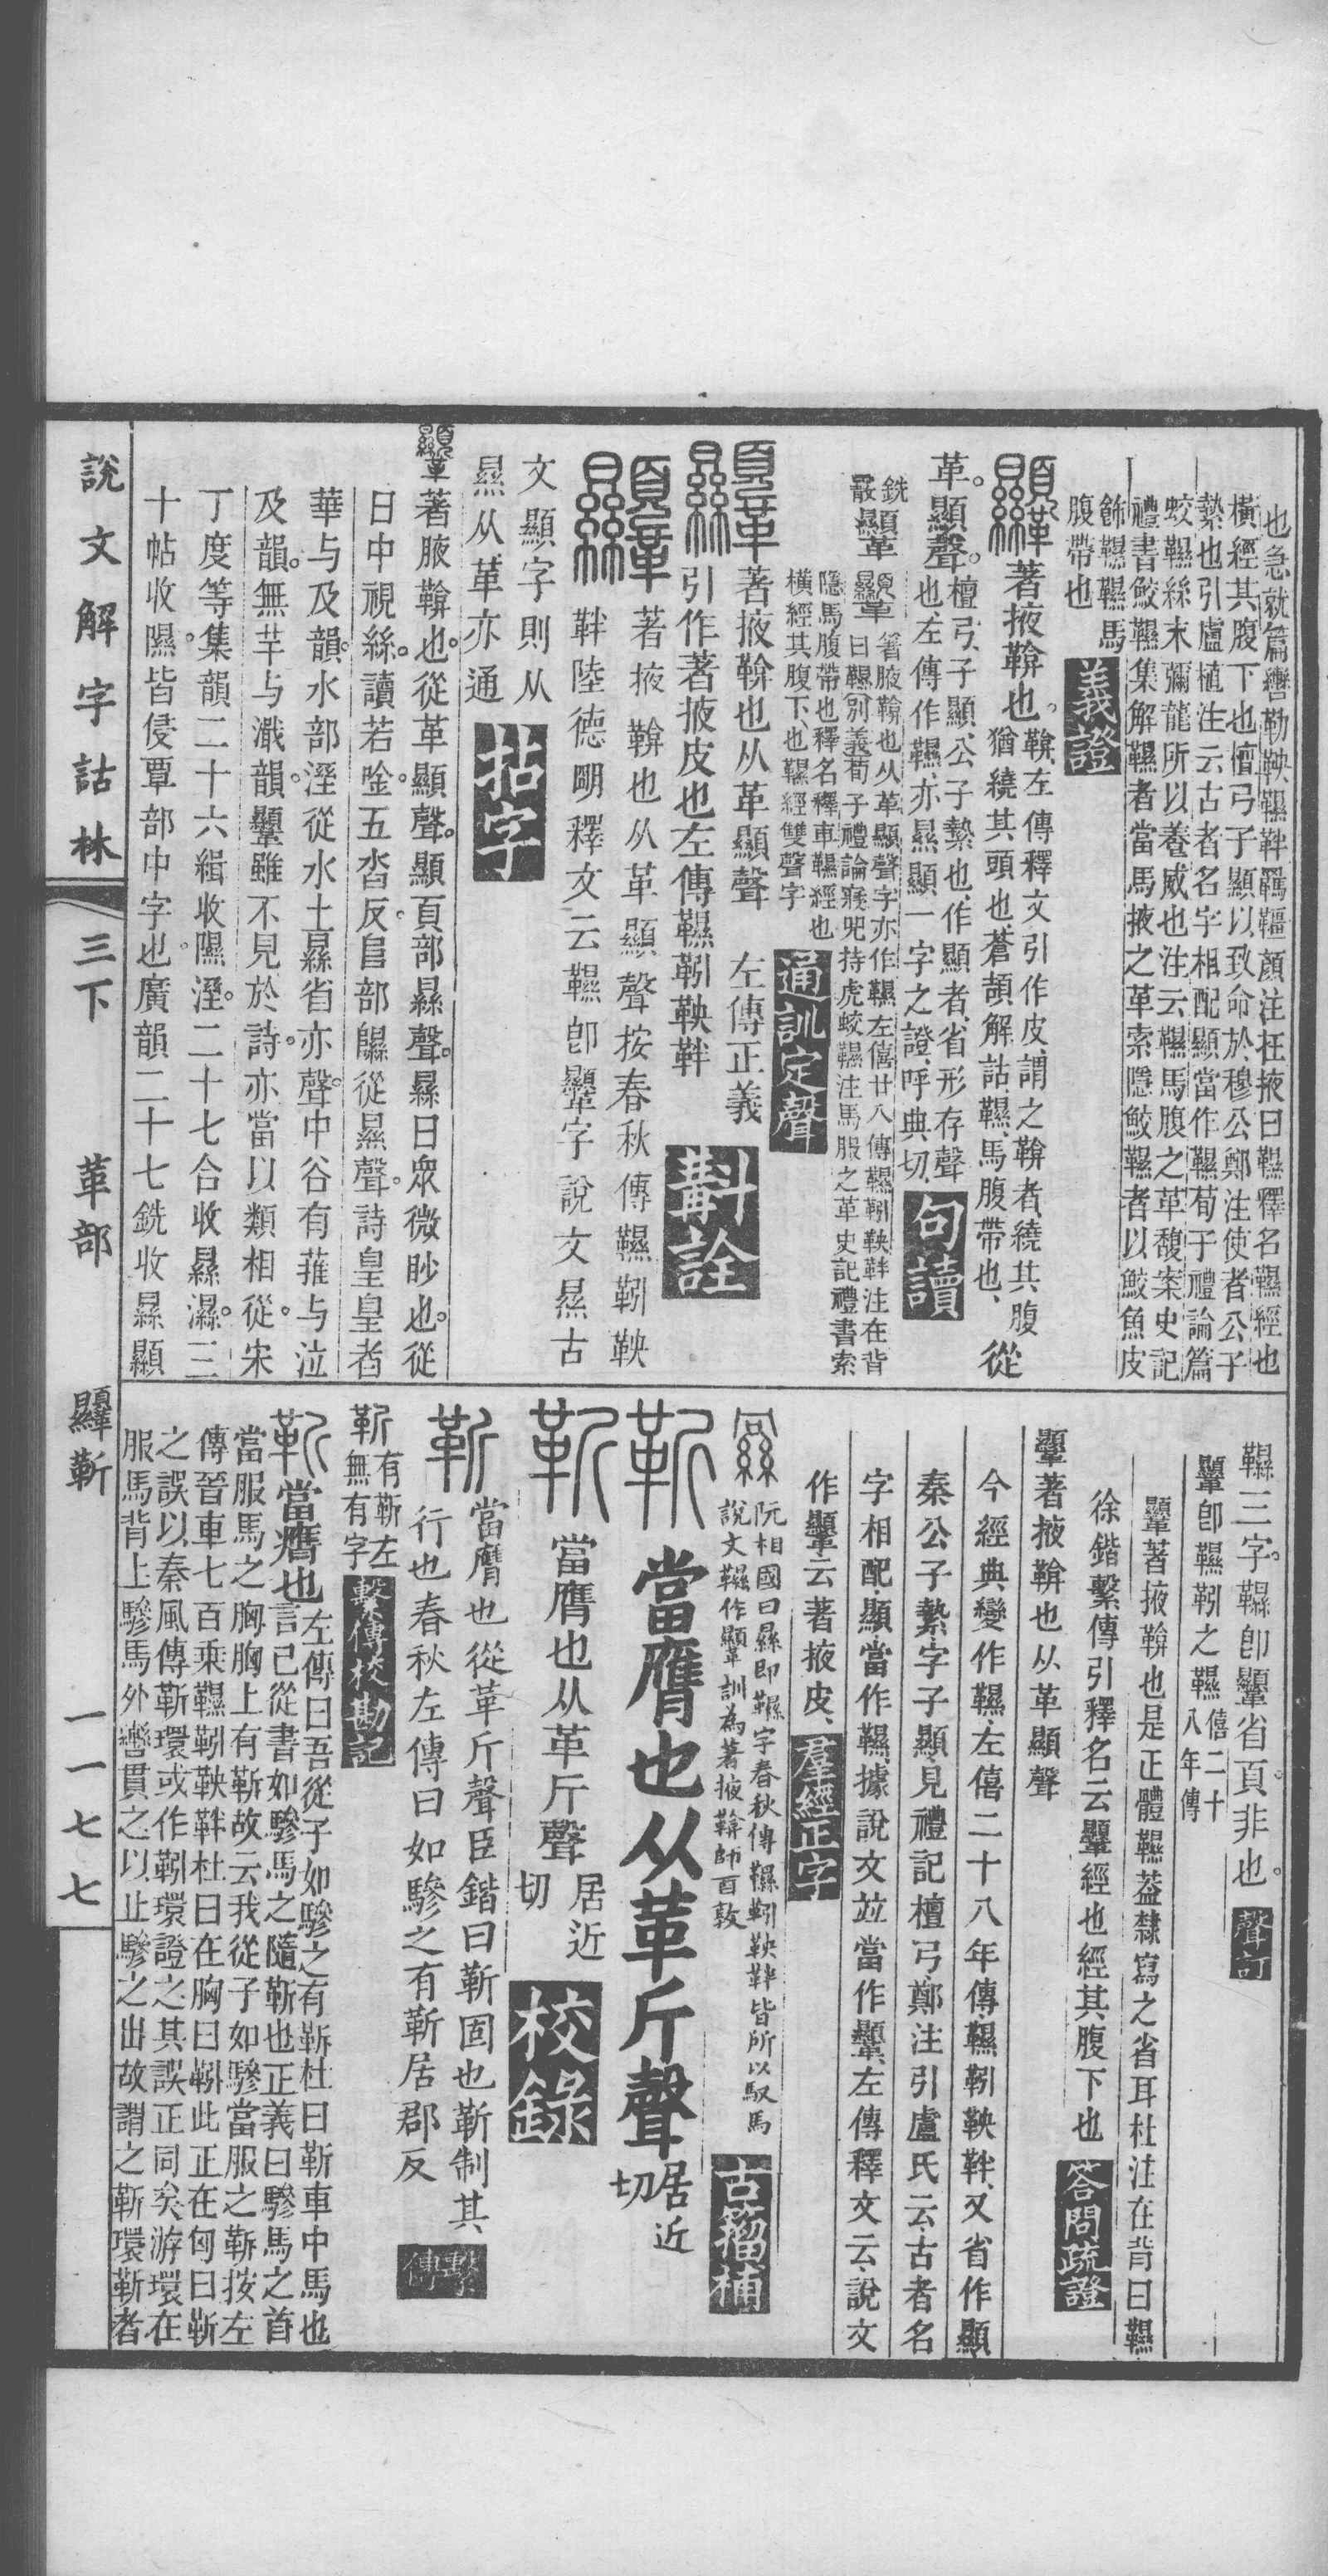 也急就篇轡勒鞅韅靽羈韁顏注在掖曰韅釋名韅經也
橫經其腹下也檀弓子顯以致命於穆公鄭注使者公子
縶也引盧植注云古者名字相配顯當作韅荀子禮論篇
蛟韅絲末彌龍所以養威也注云韅馬腹之革馥案史記
禮書鮫韅集解韅者當馬掖之革索隱鮫韅者以鮫魚皮
飾韅韅馬
腹帶也 義證
韅著掖鞥也。鞥、左傳釋文引作皮、謂之鞥者、繞其腹
猶繞其頭也、蒼頡解詁韅、馬腹帶也、從
革。顯聲。檀弓、子顯、公子縶也、作顯者、省形存聲
也、左傳作韅、亦㬎顯一字之證、呼典切、句讀
銑
韅 著腋鞥也从革顯聲字亦作韅左僖廿八傳韅靷鞅靽注在背
曰韅〔別義〕荀子禮論寢兕持虎蛟韅注馬服之革史記禮書索
隱馬腹帶也釋名釋車韅經也
橫經其腹下也韅經雙聲字 通訓定聲
韅著掖鞥也从革顯聲 左傳正義
引作著掖皮也左傳韅靷鞅靽 斠詮
韅著掖鞥也从革顯聲按春秋傳韅靷鞅
靽陸德明釋文云韅卽韅字說文㬎古
文顯字則从
㬎从革亦通 拈字
韅著腋鞥也。從革顯聲。顯頁部㬎聲。㬎日眾微眇也。從
日中視絲。讀若唫。五沓反。𨸏部隰從㬎聲。詩皇皇者
華与及韻。水部溼從水土㬎省亦聲。中谷有蓷与泣
及韻。無芊与濈韻。韅雖不見於詩。亦當以類相從。宋
丁度等集韻二十六緝收隰溼。二十七合收㬎濕。三
十帖收隰。皆侵覃部中字也。廣韻二十七銑收㬎顯
韅三字。韅卽韅省頁。非也。聲訂
韅卽韅靷之韅僖二十八年傳
韅著掖鞥也是正體韅葢隸寫之省耳杜注在背曰韅
徐鍇繫傳引釋名云韅經也經其腹下也 答問疏證
韅著掖鞥也从革顯聲
今經典變作韅、左僖二十八年傳、韅靷鞅靽、又省作顯、
秦公子縶、字子顯、見禮記檀弓、鄭注引盧氏云、古者名
字相配、顯當作韅、據說文並當作韅、左傳釋文云、說文
作韅、云著掖皮、羣經正字
阮相國曰㬎卽韅字春秋傳韅靷鞅靽皆所以馭馬
說文韅作韅訓為著掖鞥師酉敦 古籀補
靳 當膺也从革斤聲 居近切
靳 當膺也从革斤聲 居近切 校錄
靳 當膺也從革斤聲臣鍇曰靳固也靳制其
行也春秋左傳曰如驂之有靳居郡反 繫傳
靳 有靳左
無有字 繫傳校勘記
靳當膺也左傳曰吾從子如驂之有靳杜曰靳車中馬也
言己從書如驂馬之隨靳也正義曰驂馬之首
當服馬之胸胸上有靳故云我從子如驂當服之靳按左
傳晉車七百乘韅靷鞅靽杜曰在胸曰靷此正在匈曰靳
之誤以秦風傳靳環或作靷環證之其誤正同矣游環在
服馬背上驂馬外轡貫之以止驂之出故謂之靳環靳者
說文解字詁林 三下 革部 韅靳 一一七七